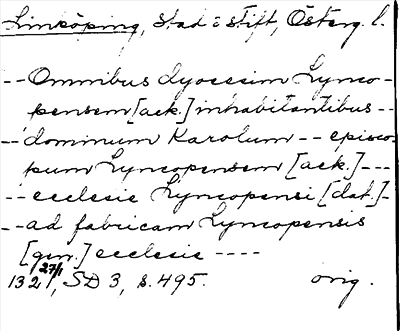 Linköping, stad o stift, Österg. l.
-- Omnibus dyocesim Lynco-
pensem [ack.] inhabitantibus --
-- dominum Karolum -- episco-
pum Lyncopensem [ack.] ---
-- ecclesie Lyncopensi [dat.] -
-- ad fabricam Lyncopensis
[gen.] ecclesie ----
1321 27/1, SD 3, s. 495. orig.